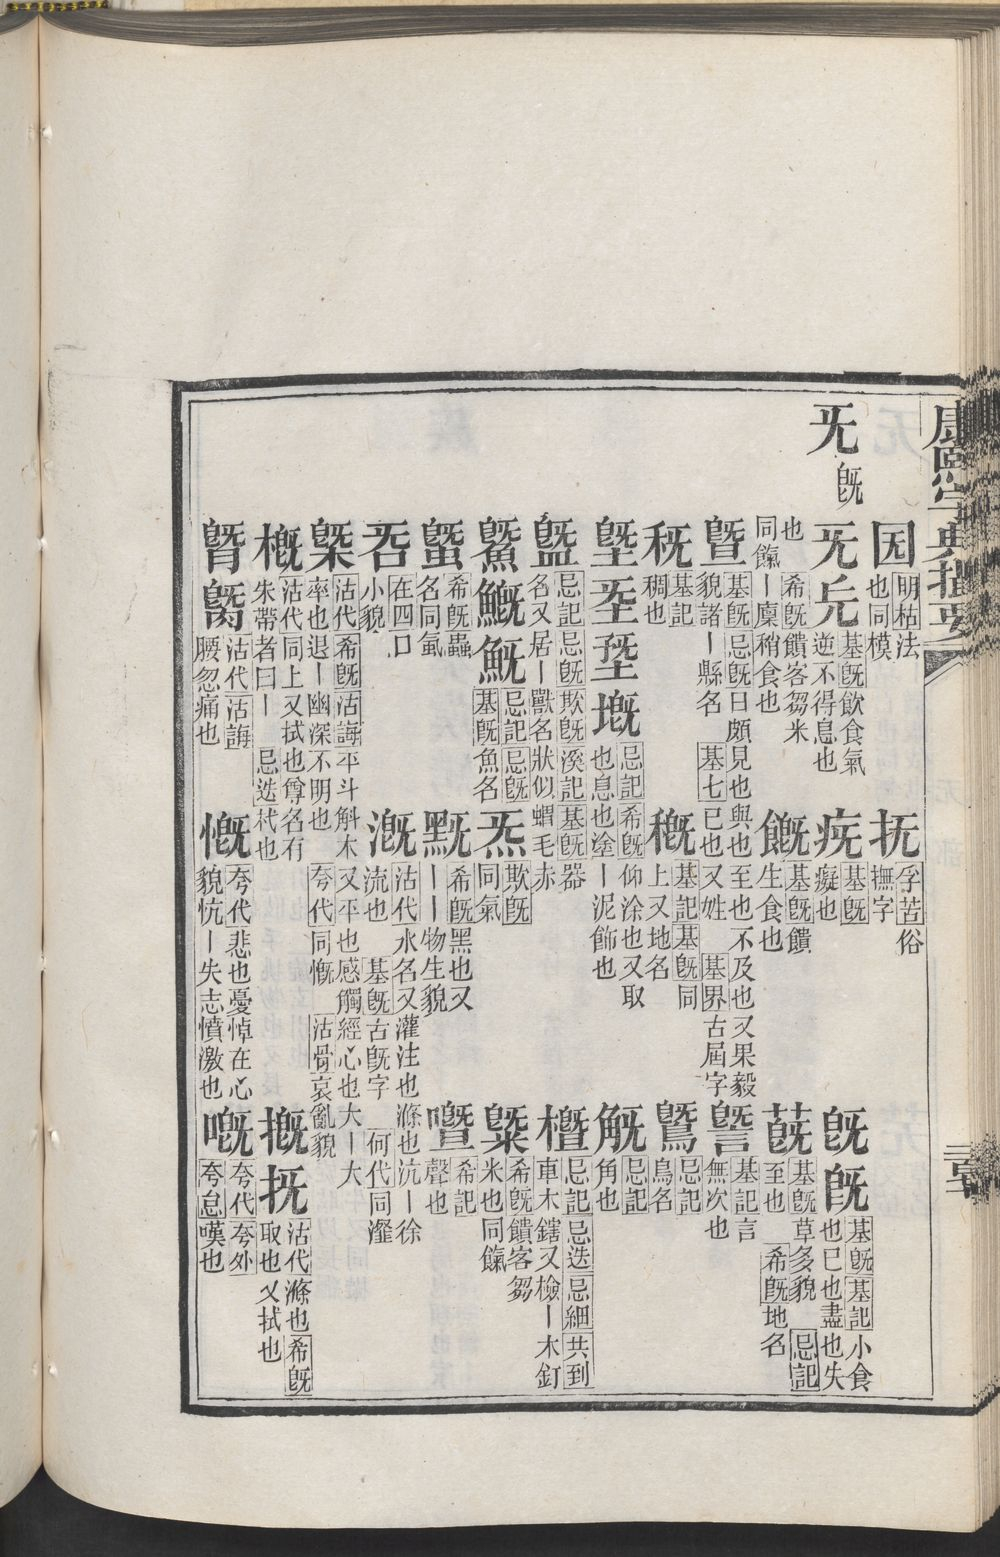 康熙字典撮要
囦 明枯法也同模 抚 孚苦俗撫字
旡 旣
旡 兂 基旣飲食氣逆不得息也 㾌 基旣癡也 旣 既 基旣基記小食也已也盡也失
也 希旣饋客芻米同餼丨廩稍食也 餼 基旣饋生食也 蔇 基旣草多貌 忌記至也 希旣地名
曁 基旣忌旣日頗見也與也至也不及也又果毅貌諸丨縣名 基七已也又姓 基界古屆字 基記言無次也
基記稠也 穊 基記基旣同上又地名 忌記鳥名
塈 墍 塈 塏 忌記希旣仰涂也又取也息也塗丨泥飾也 忌記角也
忌記忌旣欺旣溪記基旣器名又居丨獸名狀似蝟毛赤 忌記忌迭忌細共到車木鎋又檢丨木釘
忌記忌旣基旣魚名 炁 欺旣同氣 希旣饋客芻米也同餼
希旣蟲名同虱 希旣黑也又丨丨物生貌 嘅 希記聲也
吞 在四口小貌 漑 沽代水名又灌注也滌也沆丨徐流也 基旣古旣字 何代同瀣
槩 沽代希旣沽誨平斗斛木又平也感觸經心也大丨大率也退丨幽深不明也 夸代同慨 沽骨哀亂貌
概 沽代同上又拭也尊名有朱帶者曰丨 忌迭杙也 摡 抚 沽代滌也希旣取也又拭也
沽代沽誨腰忽痛也 慨 夸代悲也憂悼在心貌忼丨失志憤激也 嘅 夸代夸外夸怠嘆也